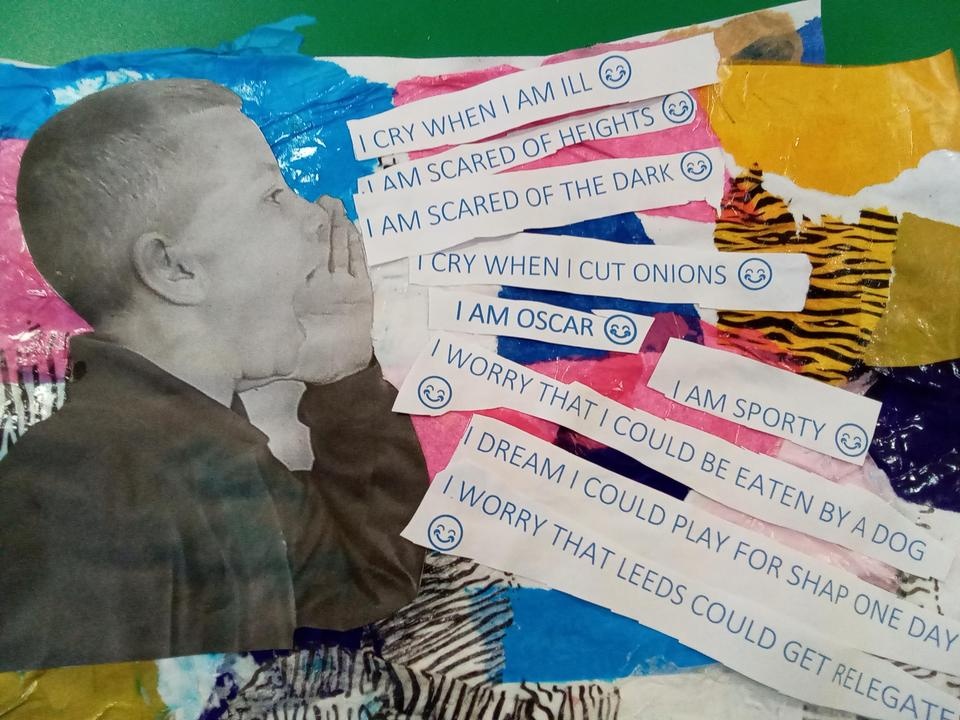 I CRY WHEN I AM ILL
I AM SCARED OF HEIGHTS
I AM SCARED OF THE DARK
I CRY WHEN I CUT ONIONS
I AM OSCAR
I AM SPORTY
I WORRY THAT I COULD BE EATEN BY A DOG
I DREAM I COULD PLAY FOR SHAP ONE DAY
I WORRY THAT LEEDS COULD GET RELEGATE